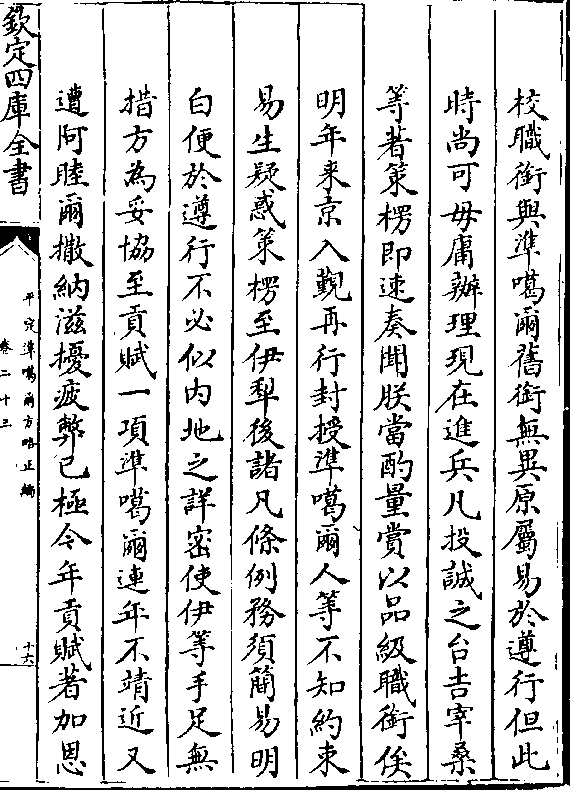 校職銜與準噶爾舊銜無異原屬易於遵行但此
時尚可毋庸辦理現在進兵凡投誠之台吉宰桑
等著策楞即速奏聞朕當酌量賞以品級職銜俟
明年来京入覲再行封授準噶爾人等不知約束
易生疑惑策楞至伊犁後諸凡條例務須簡易明
白便於遵行不必似内地之詳密使伊等手足無
措方為妥協至貢賦一項準噶爾連年不靖近又
遭阿睦爾撒納滋擾疲弊已極今年貢賦著加恩
欽定四庫全書
平定準噶爾方略正編
卷二十三
十六